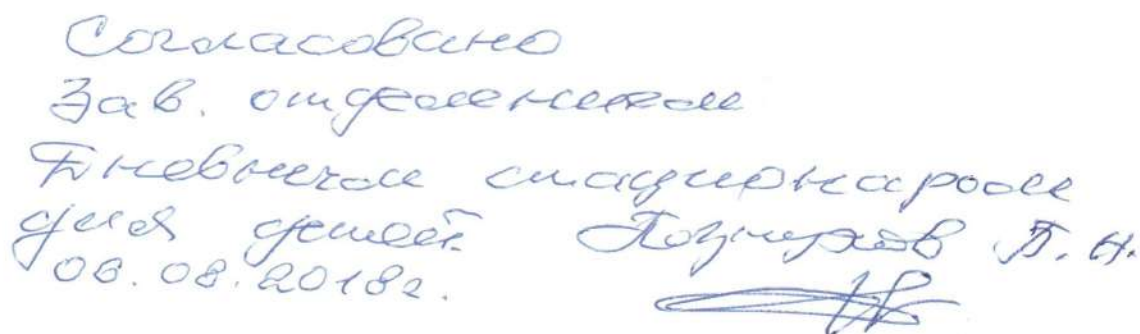 Согласовано
Зав. отделением
Дневным стационаром
для детей
06.08.2018г.